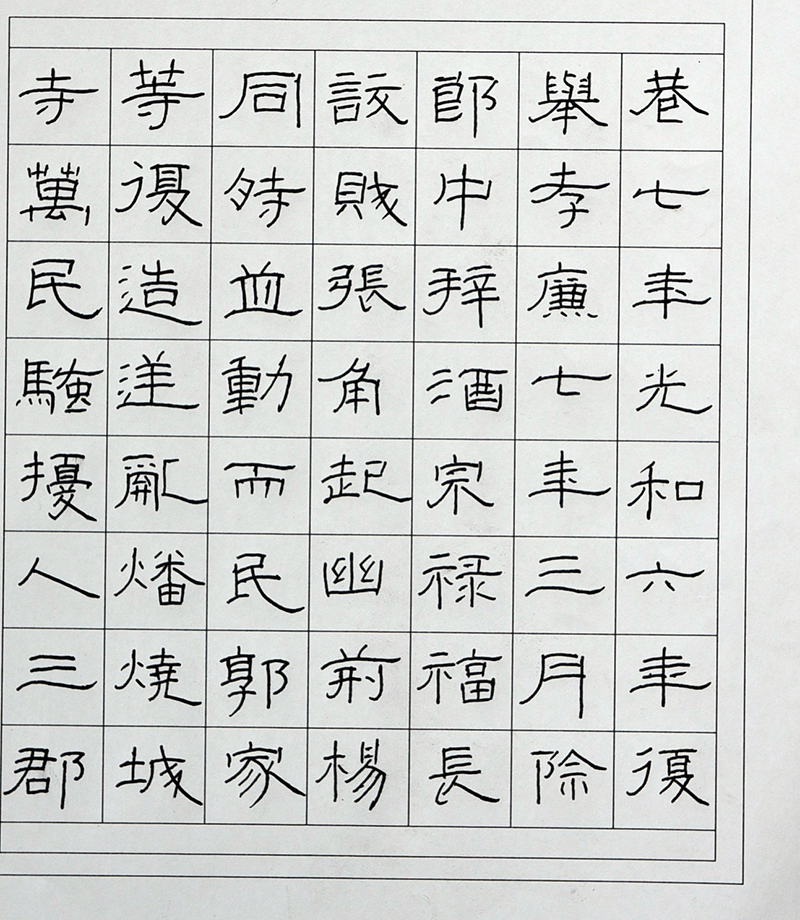 巷七年光和六年復
舉孝廉七年三月除
郎中拜酒宗禄福長
訞賊張角起幽荊楊
同時並動而民郭家
等復造逆亂燔燒城
寺萬民騷擾人三郡